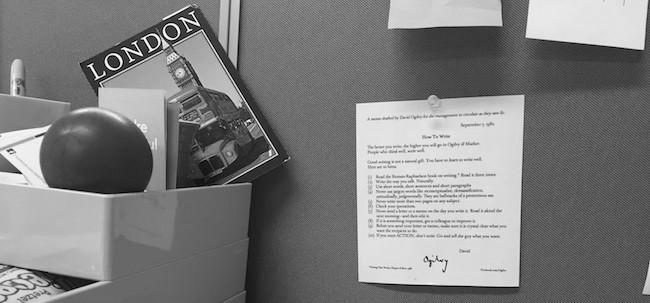 LONDON
A memo drafted by David Ogilvy for the management to circulate as they saw fit.
September 7, 1982
How To Write
The better you write, the higher you will go in Ogilvy & Mather.
People who think well, write well.
Good writing is not a natural gift. You have to learn to write well.
Here are 10 hints.
(1) Read the Roman-Raphaelson book on writing.* Read it three times
(2) Write the way you talk. Naturally.
(3) Use short words, short sentences and short paragraphs
(4) Never use jargon words like reconceptualize, demassification,
attitudinally, judgmentally. They are hallmarks of a pretentious ass
(5) Never write more than two pages on any subject
(6) Check your quotations.
(7) Never send a letter or a memo on the day you write it. Read it aloud the
next morning—and then edit it.
(8) If it is something important, get a colleague to improve it
(9) Before you send your letter or memo, make sure it is crystal clear what you
want the recipient to do.
(10) If you want ACTION, don't write. Go and tell the guy what you want.
David
Ogilvy
Pretzel